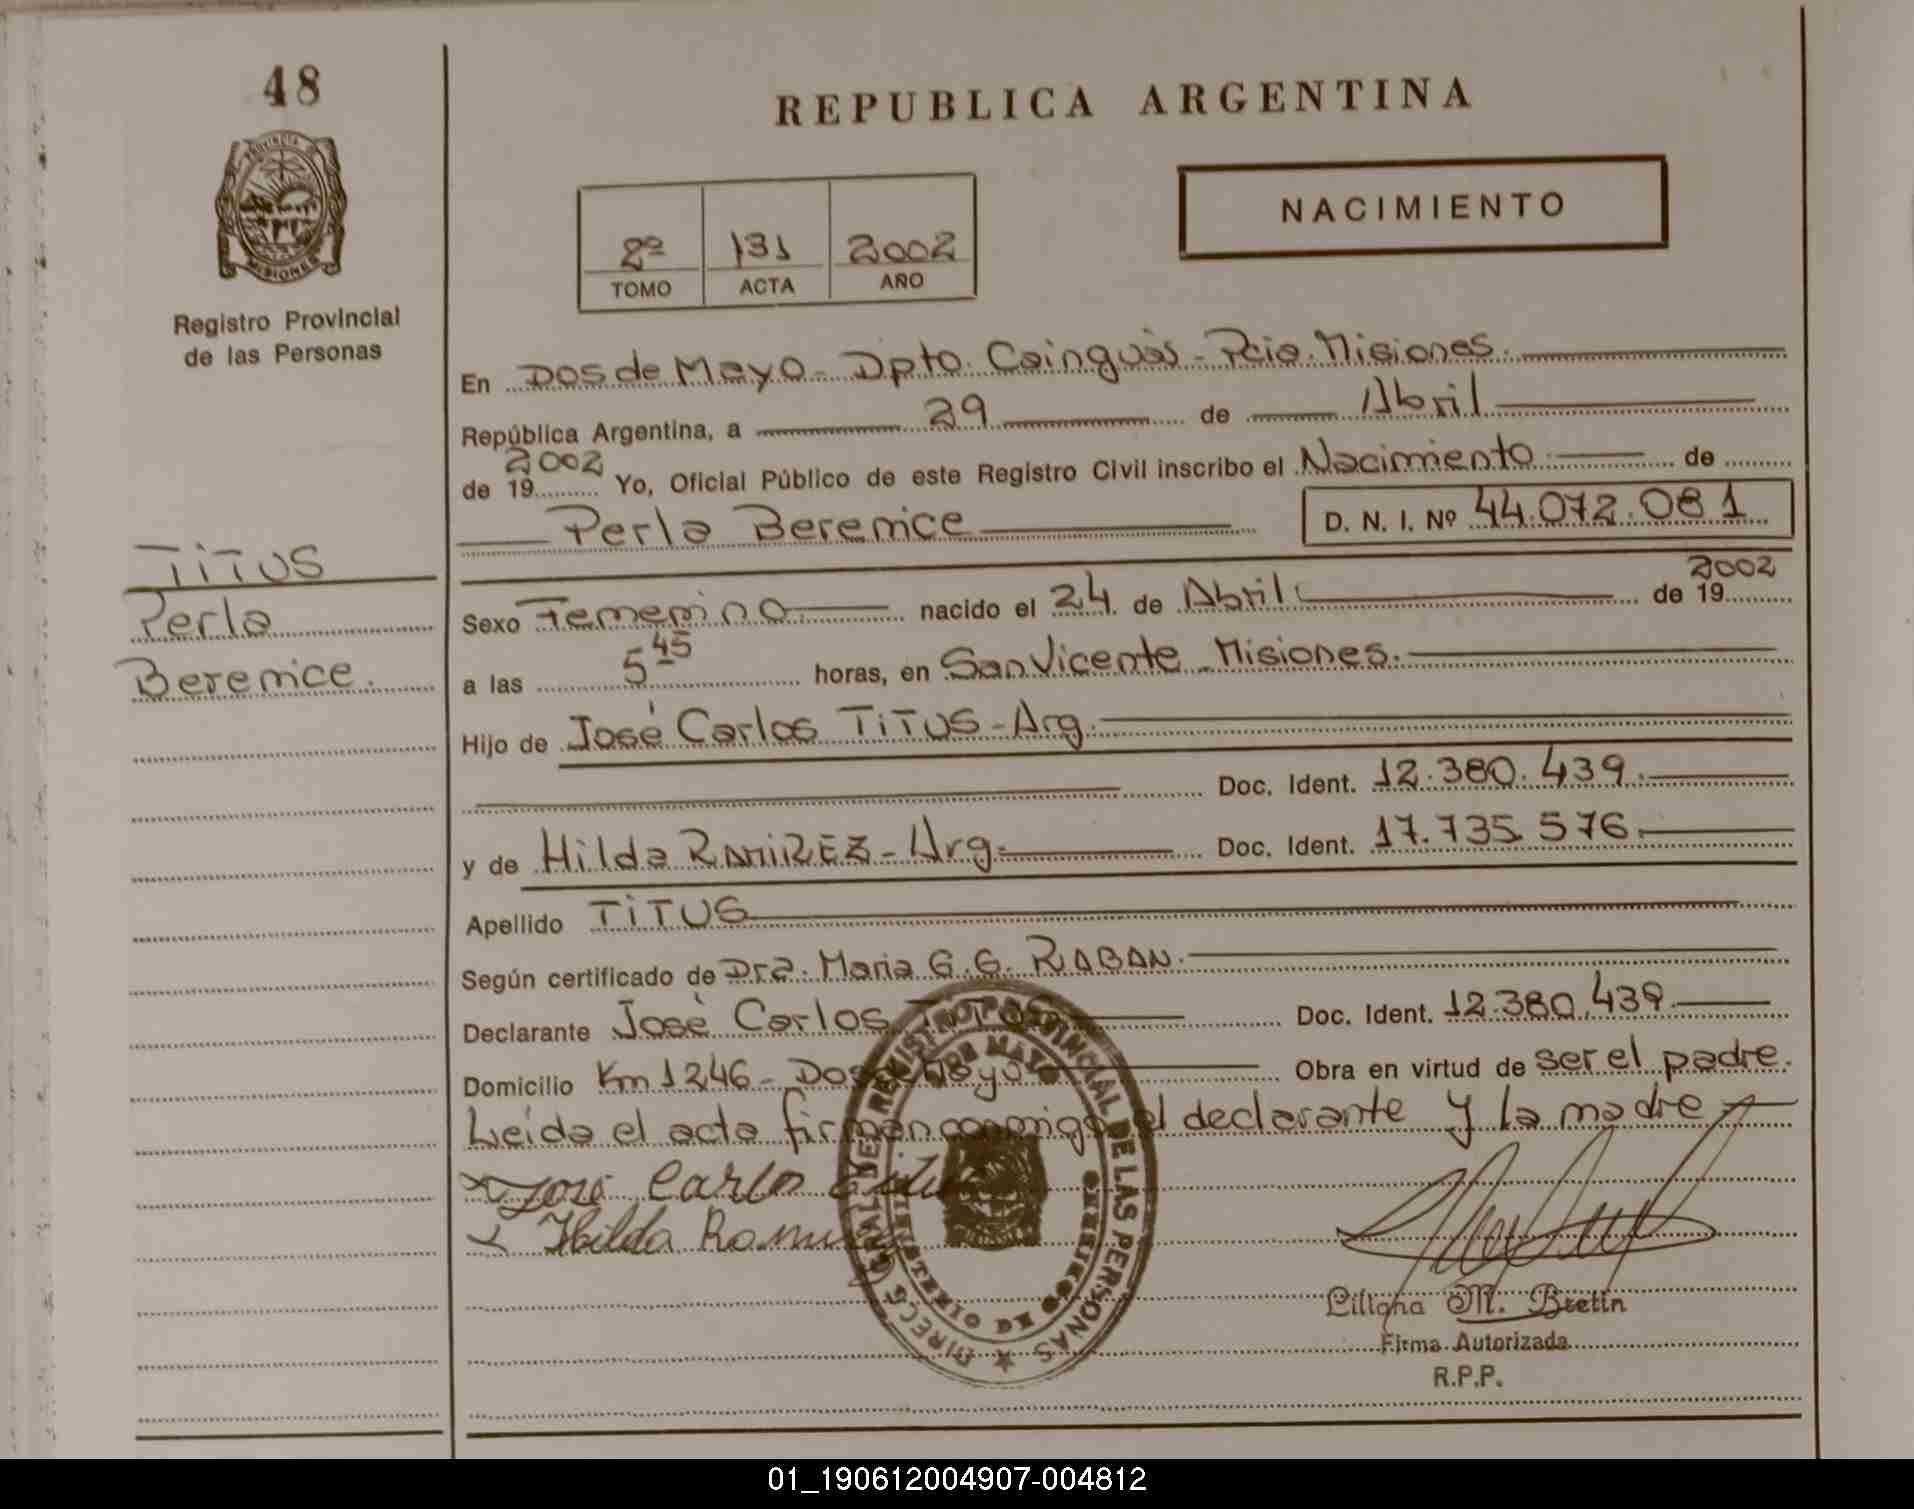 48
PROVINCIA DE
MISIONES
Registro Provincial
de las Personas
TITUS
Perla
Berenice.
REPUBLICA ARGENTINA
2º 131 2002
TOMO ACTA AÑO
NACIMIENTO
En Dos de Mayo - Dpto. Cainguás - Pcia. Misiones.
República Argentina, a 29 de Abril
de 19 2002 Yo, Oficial Público de este Registro Civil inscribo el Nacimiento de
Perla Berenice D. N. I. Nº 44.072.081
Sexo Femenino nacido el 24 de Abril de 19 2002
a las 5 45 horas, en San Vicente - Misiones.
Hijo de José Carlos TITUS - Arg.
Doc. Ident. 12.380.439.
y de Hilda RAMIREZ - Arg. Doc. Ident. 17.735.576.
Apellido TITUS
Según certificado de Dra. Maria G. G. RABAN.
Declarante José Carlos TITUS Doc. Ident. 12.380.439.
Domicilio Km 1246 - Dos de Mayo Obra en virtud de ser el padre.
Leída el acta firman conmigo el declarante y la madre
x José Carlos Titus
x Hilda Ramirez
DIRECC. GRAL. DEL REGISTRO PROVINCIAL DE LAS PERSONAS
DOS DE MAYO
MINISTERIO DE GOBIERNO
Liliana M. Bretin
Firma Autorizada
R.P.P.
01_190612004907-004812